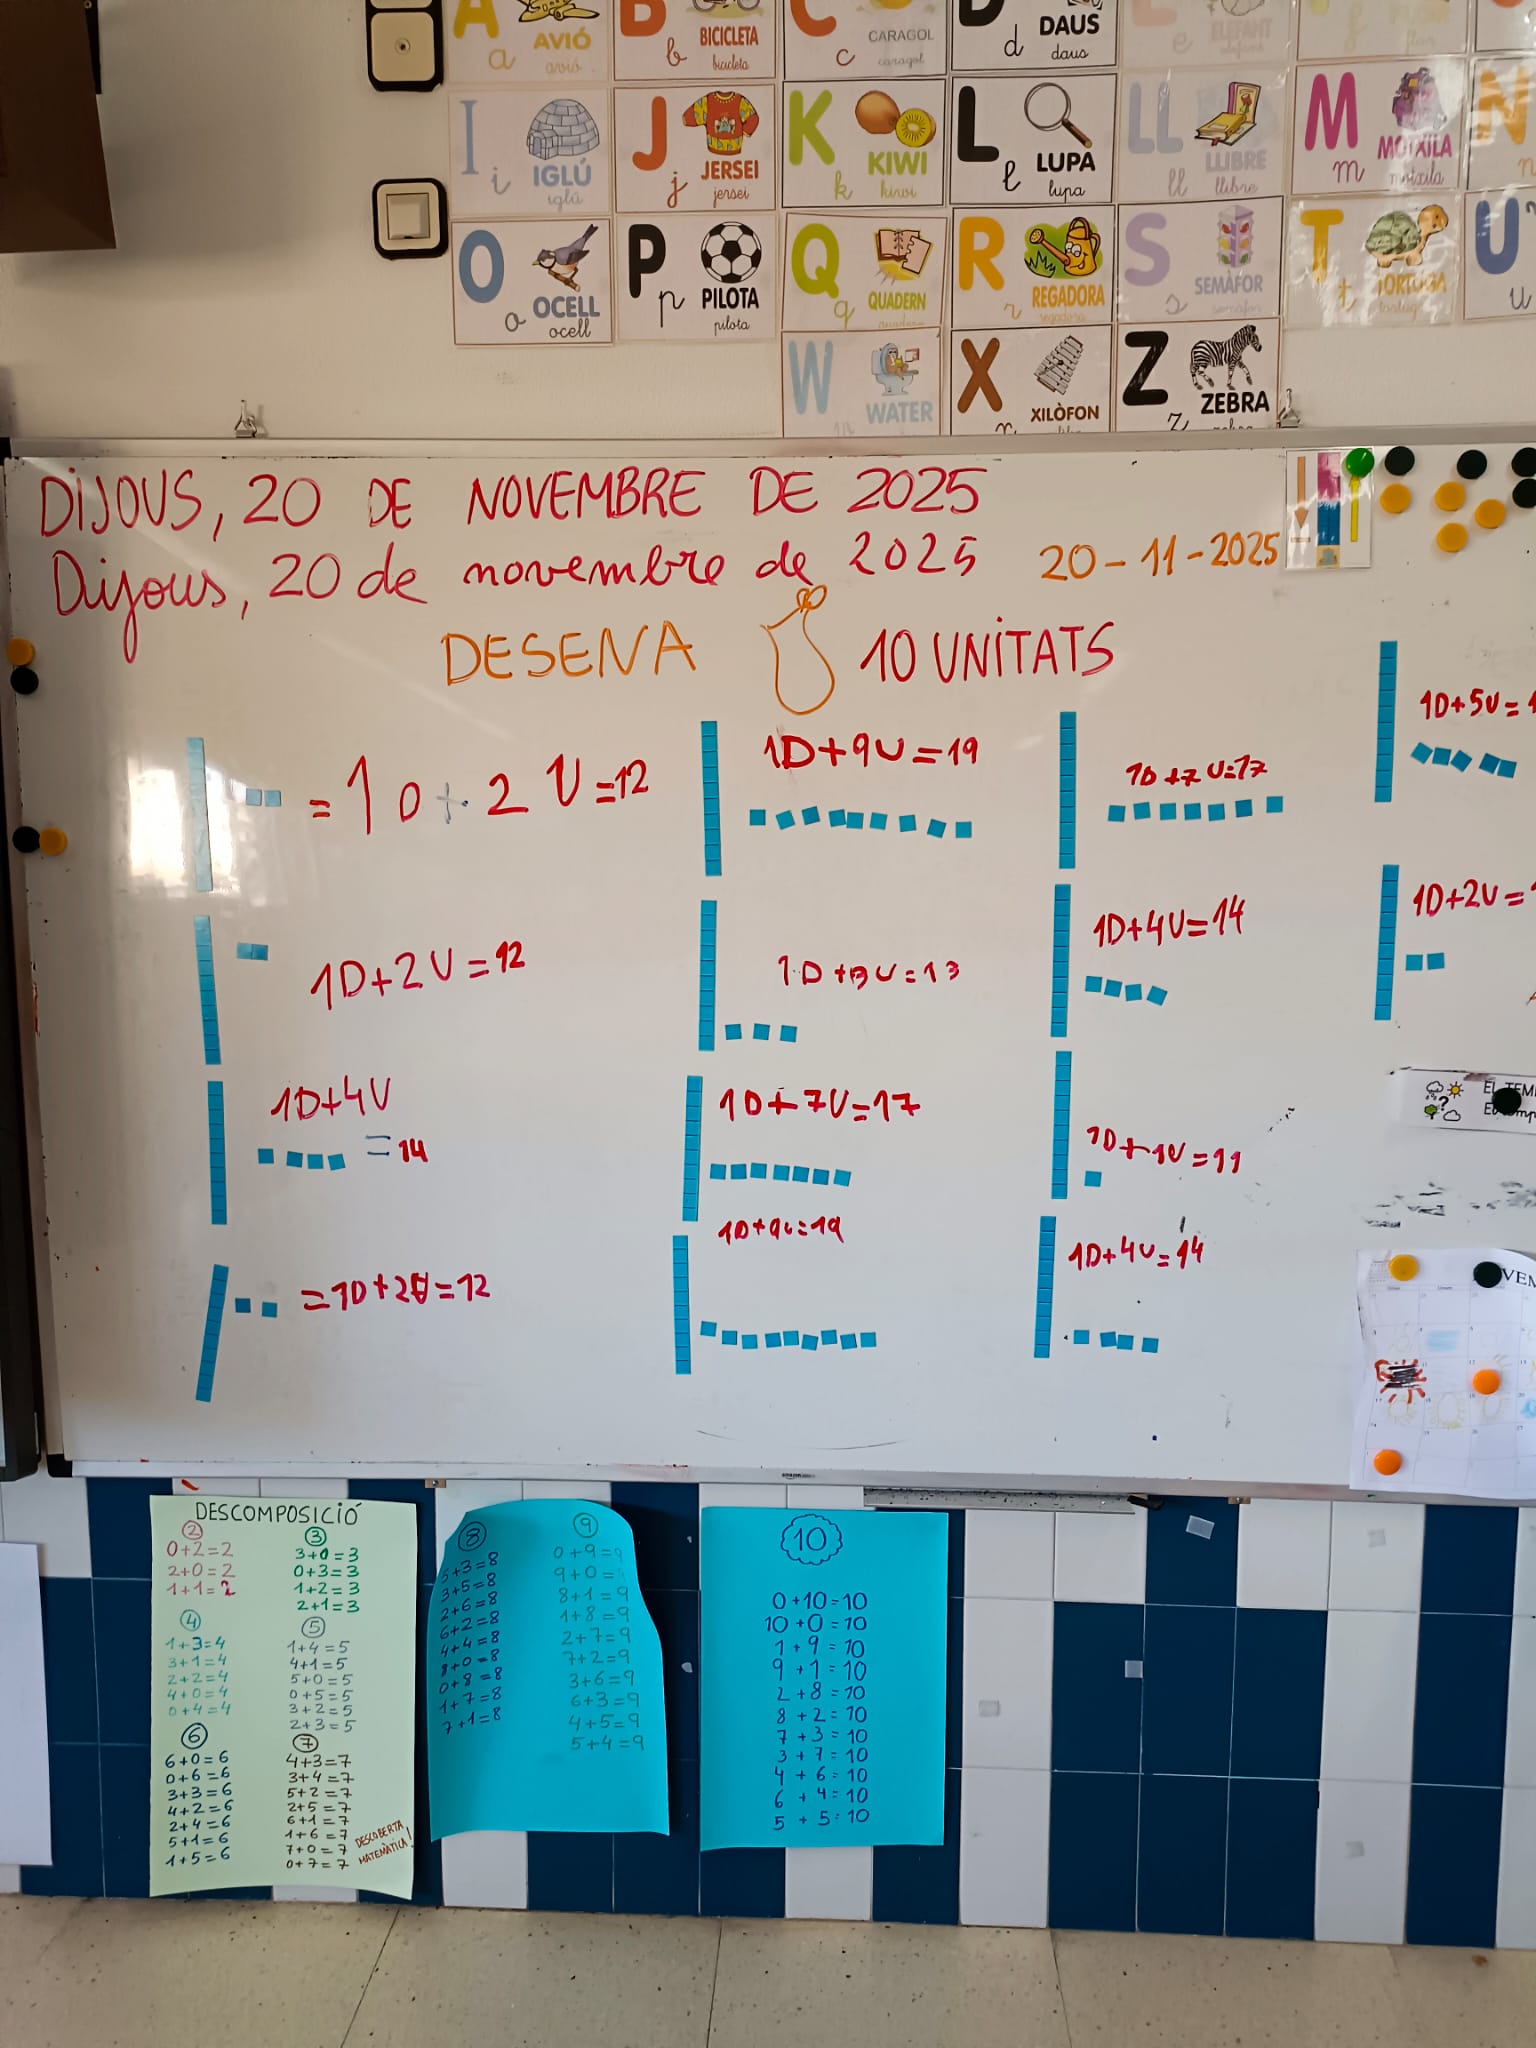 A a AVIÓ avió
B b BICICLETA bicicleta
C c CARAGOL caragol
D d DAUS daus
E e ELEFANT elefant
I i IGLÚ iglú
J j JERSEI jersei
K k KIWI kiwi
L l LUPA lupa
LL ll LLIBRE llibre
M m MOTXILA motxila
N n
O o OCELL ocell
P p PILOTA pilota
Q q QUADERN quadern
R r REGADORA regadora
S s SEMÀFOR semàfor
T t TORTUGA tortuga
U u
W w WATER
X x XILÒFON
Z z ZEBRA zebra
DIJOUS, 20 DE NOVEMBRE DE 2025
Dijous, 20 de novembre de 2025 20-11-2025
DESENA 10 UNITATS
= 1 D + 2 U = 12
1D+2U=12
1D+4U
= 14
= 1D+2U=12
1D+9U=19
1D+3U=13
1D+7U=17
1D+9U=19
1D+7U=17
1D+4U=14
1D+1U=11
1D+4U=14
1D+5U=1
1D+2U=
EL TEM
El temp
VEM
DESCOMPOSICIÓ
2
0+2=2
2+0=2
1+1=2
3
3+0=3
0+3=3
1+2=3
2+1=3
4
1+3=4
3+1=4
2+2=4
4+0=4
0+4=4
5
1+4=5
4+1=5
5+0=5
0+5=5
3+2=5
2+3=5
6
6+0=6
0+6=6
3+3=6
4+2=6
2+4=6
5+1=6
1+5=6
7
4+3=7
3+4=7
5+2=7
2+5=7
6+1=7
1+6=7
7+0=7
0+7=7
DESCOBERTA
MATEMÀTICA!
8
5+3=8
3+5=8
2+6=8
6+2=8
4+4=8
8+0=8
0+8=8
1+7=8
7+1=8
9
0+9=9
9+0=
8+1=9
1+8=9
2+7=9
7+2=9
3+6=9
6+3=9
4+5=9
5+4=9
10
0+10=10
10+0=10
1+9=10
9+1=10
2+8=10
8+2=10
7+3=10
3+7=10
4+6=10
6+4=10
5+5=10